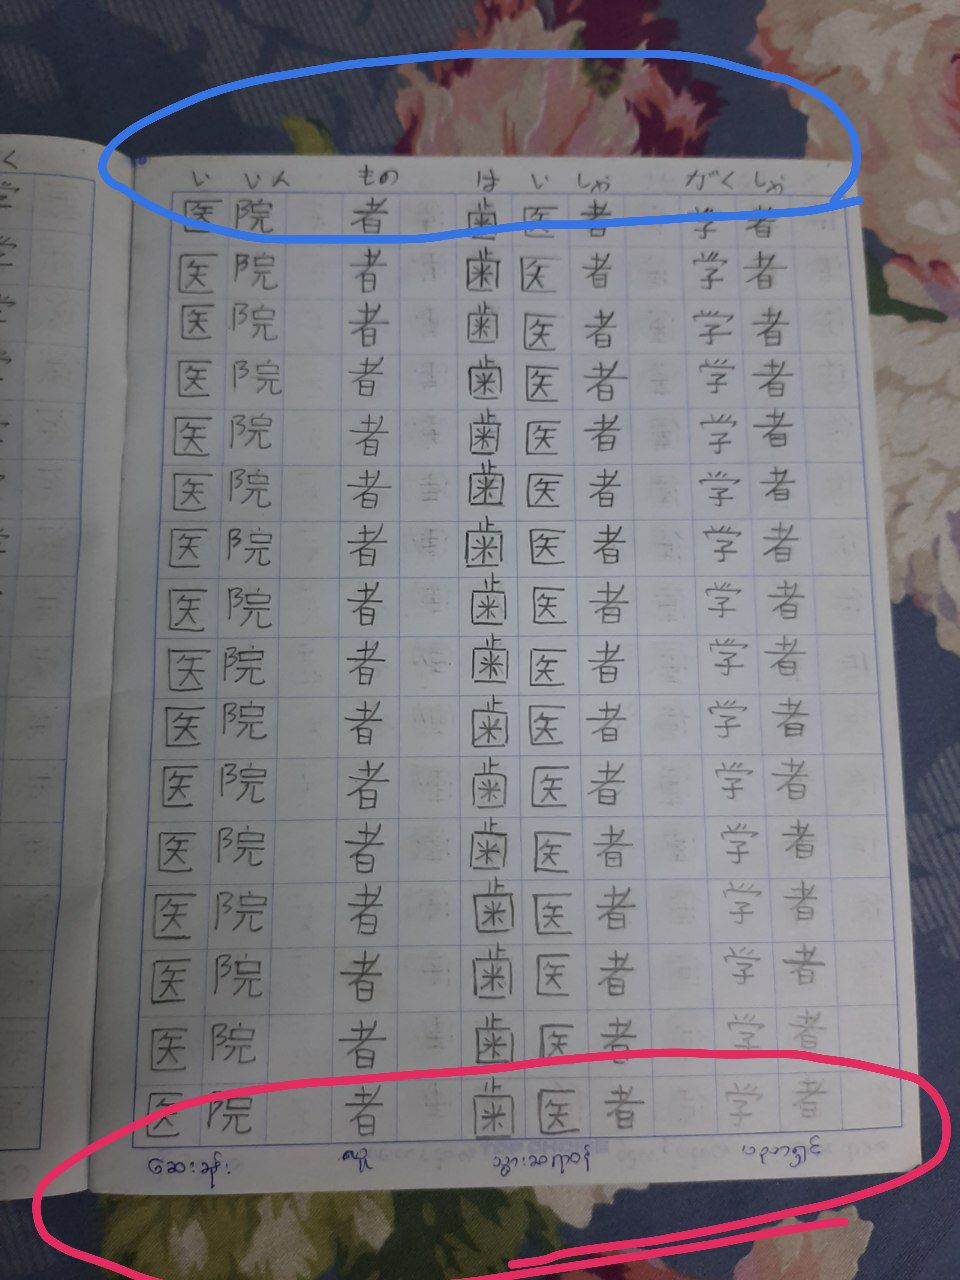 く
い いん もの は い しゃ がく しゃ
医 院 者 歯 医 者 学 者
医 院 者 歯 医 者 学 者
医 院 者 歯 医 者 学 者
医 院 者 歯 医 者 学 者
医 院 者 歯 医 者 学 者
医 院 者 歯 医 者 学 者
医 院 者 歯 医 者 学 者
医 院 者 歯 医 者 学 者
医 院 者 歯 医 者 学 者
医 院 者 歯 医 者 学 者
医 院 者 歯 医 者 学 者
医 院 者 歯 医 者 学 者
医 院 者 歯 医 者 学 者
医 院 者 歯 医 者 学 者
医 院 者 歯 医 者 学 者
医 院 者 歯 医 者 学 者
ဆေးခန်း လူ သွားဆရာဝန် ပညာရှင်